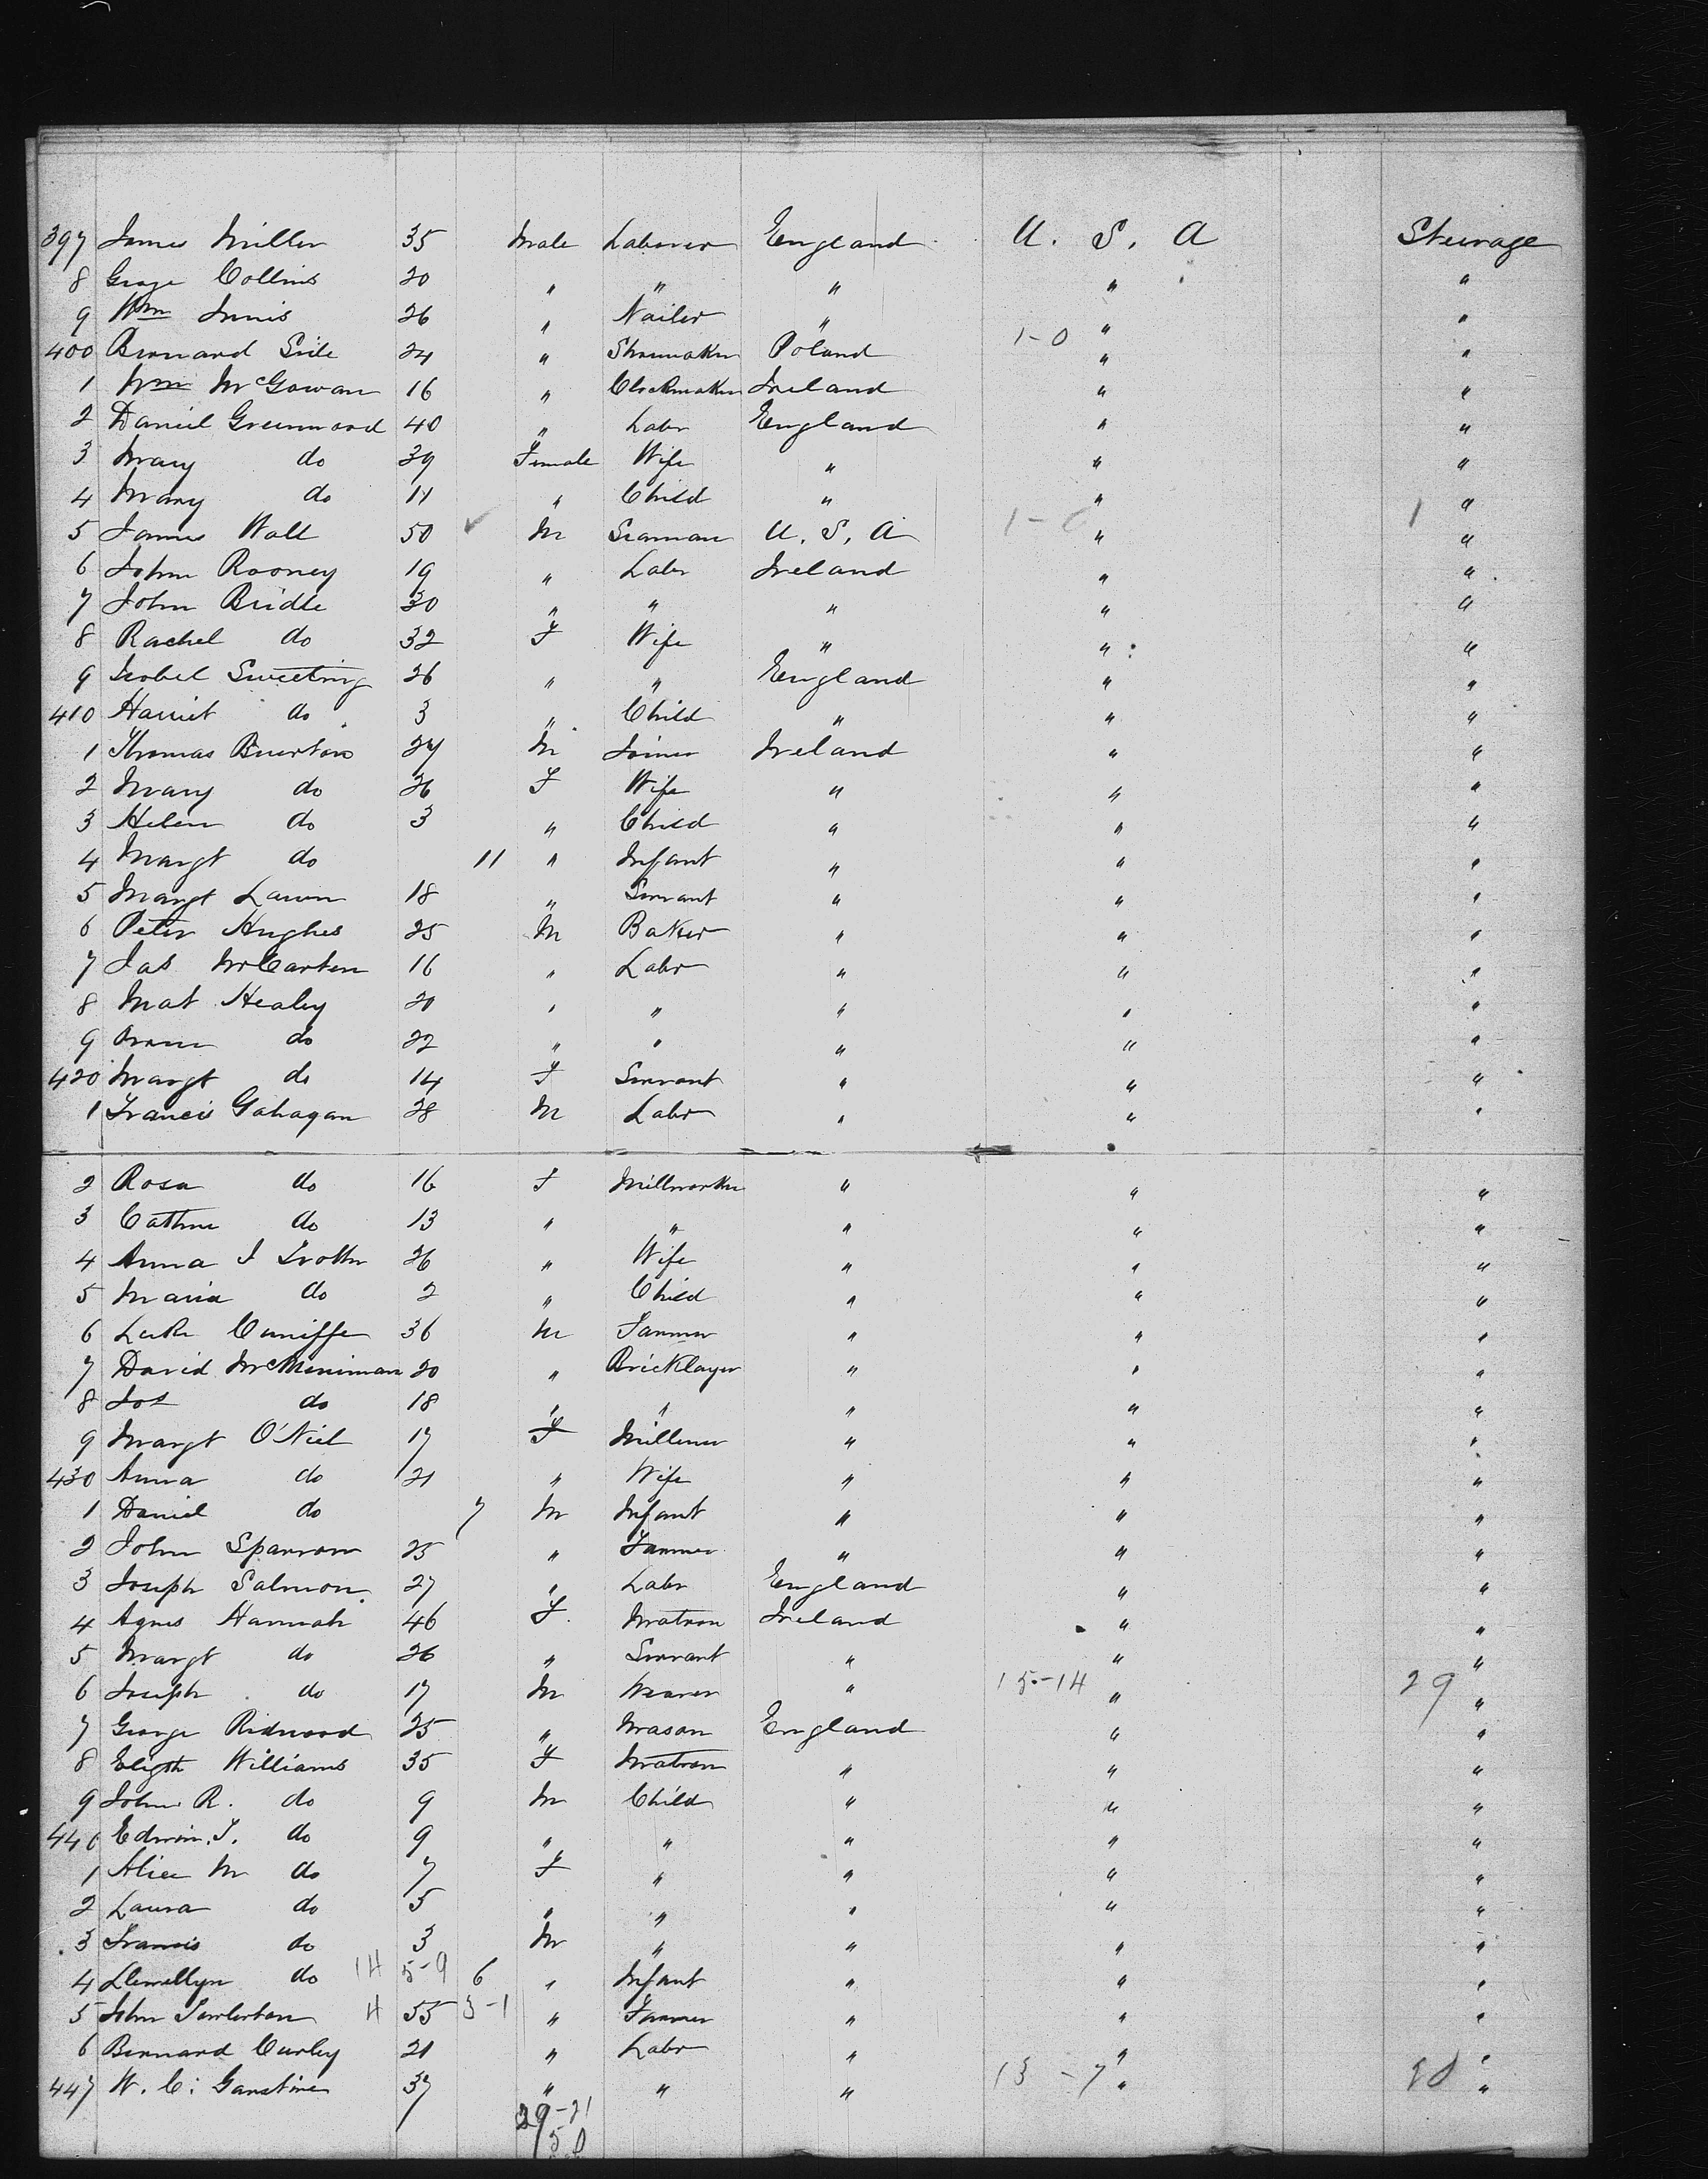 397 James Miller 35 Male Laborer England U. S. A Steerage
8 George Collins 20 " " " " "
9 Wm Innis 26 " Nailer " " "
400 Bernard 24 " Shoemaker Poland 1-0 " "
1 Wm McGowan 16 " Clockmaker Ireland " "
2 Daniel Greenwood 40 " Labr England " "
3 Mary do 39 Female Wife " " "
4 Mary do 11 " Child " " "
5 James Wall 50 ✓ M Seaman U. S. A 1-0 " 1 "
6 John Rooney 19 " Labr Ireland " "
7 John Bridle 30 " " " " "
8 Rachel do 32 F Wife " " "
9 Isobel Sweeting 26 " " England " "
410 Harriet do 3 " Child " " "
1 Thomas Buerton 27 M Joiner Ireland " "
2 Mary do 26 F Wife " " "
3 Helen do 3 " Child " " "
4 Margt do 11 " Infant " " "
5 Margt 18 " Servant " " "
6 Peter Hughes 25 M Baker " " "
7 Jas McCarten 16 " Labr " " "
8 Mat Healey 20 " " " " "
9 do 22 " " " " "
420 Margt do 14 F Servant " " "
1 Francis Gahagan 28 M Labr " " "
2 Rosa do 16 F Millworker " " "
3 Cathne do 13 " " " " "
4 Anna J Trotter 26 " Wife " " "
5 Maria do 2 " Child " " "
6 Luke Cuniffe 36 M Farmer " " "
7 David McMeniman 20 " Bricklayer " " "
8 Jos do 18 " " " " "
9 Margt O'Niel 17 F Milliner " " "
430 Anna do 21 " Wife " " "
1 Daniel do 7 M Infant " " "
2 John Sparrow 25 " Farmer " " "
3 Joseph Salmon 27 " Labr England " "
4 Agnes Hannah 46 F Matron Ireland " "
5 Margt do 26 " Servant " " "
6 Joseph do 17 M Weaver " 15-14 " 29 "
7 George Ridwood 25 " Mason England " "
8 Eligth Williams 35 F Matron " " "
9 John R. do 9 M Child " " "
440 Edwin. J. do 9 " " " " "
1 Alice M do 7 F " " " "
2 Laura do 5 " " " " "
3 Francis do 3 M " " " "
4 Llewellyn do 14 5-9 6 " Infant " " "
5 John 4 55 3-1 " Farmer " " "
6 Bernard Curley 21 " Labr " " "
447 W. C. Ganstine 37 " " " 13-7 " "
29-21